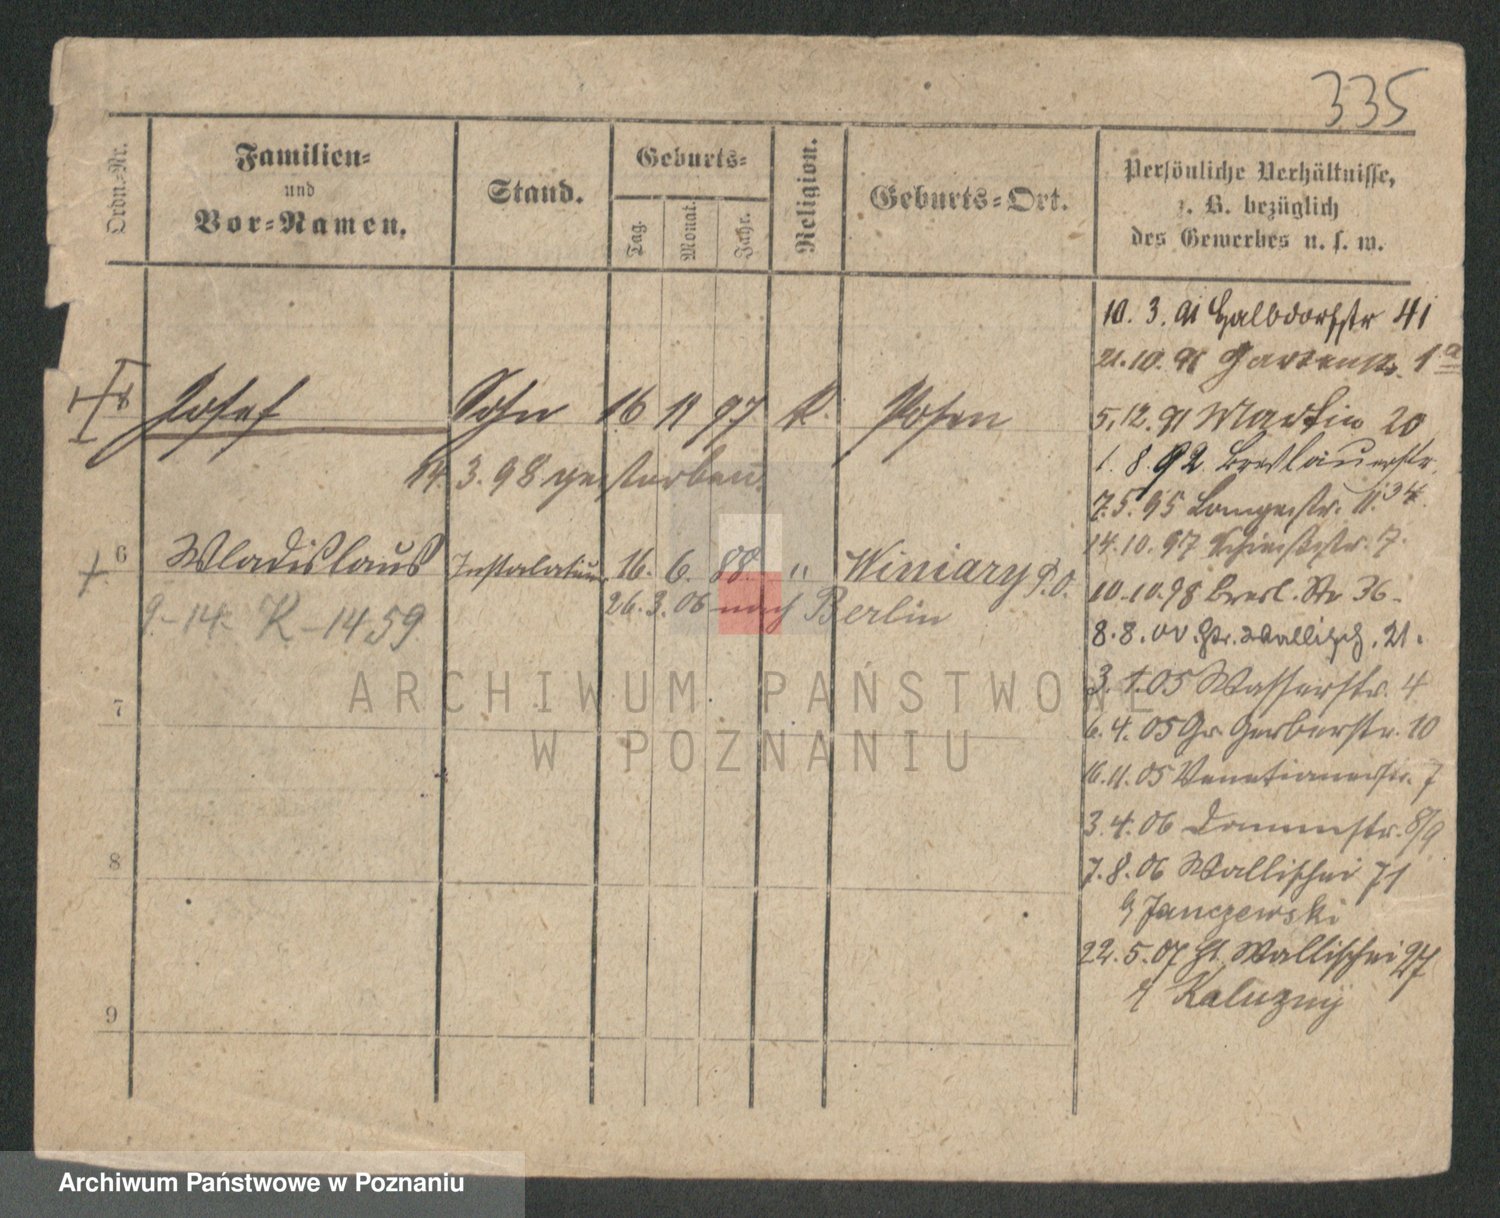 335
Ordn.-Nr.
Familien-
und
Vor-Namen.
Stand.
Geburts-
Tag.
Monat.
Jahr.
Religion.
Geburts-Ort.
Persönliche Verhältnisse,
z. B. bezüglich
des Gewerbes u. s. w.
10. 3. 91 Halbdorfstr 41
21.10. 91 Gartenstr. 1a
Josef Sohn 16 11 97 K. Posen
5.12. 91 Martin 20
1. 8. 92 Breslauerstr.
14. 3. 98 gestorben.
34
7.5.95 Langestr. 11.
14.10.97 7.
6 Wladislaus 16. 6. 88. " Winiary P.O.
26.3.06 nach Berlin
10.10.98 Bresl. Str 36
9-14. K-1459
8.8.00 Wallisch. 21.
3.1.05 Wasserstr. 4
7
6.4.05 Gr. Gerberstr. 10
16.11.05 Venetianerstr. 7
3.4.06 Dammstr. 8/9
8
7.8.06 Wallischei 71
b/ Janczewski
22.5.07 Wallischei 27
Kaluzny
9
ARCHIWUM PAŃSTWOWE
W POZNANIU
Archiwum Państwowe w Poznaniu